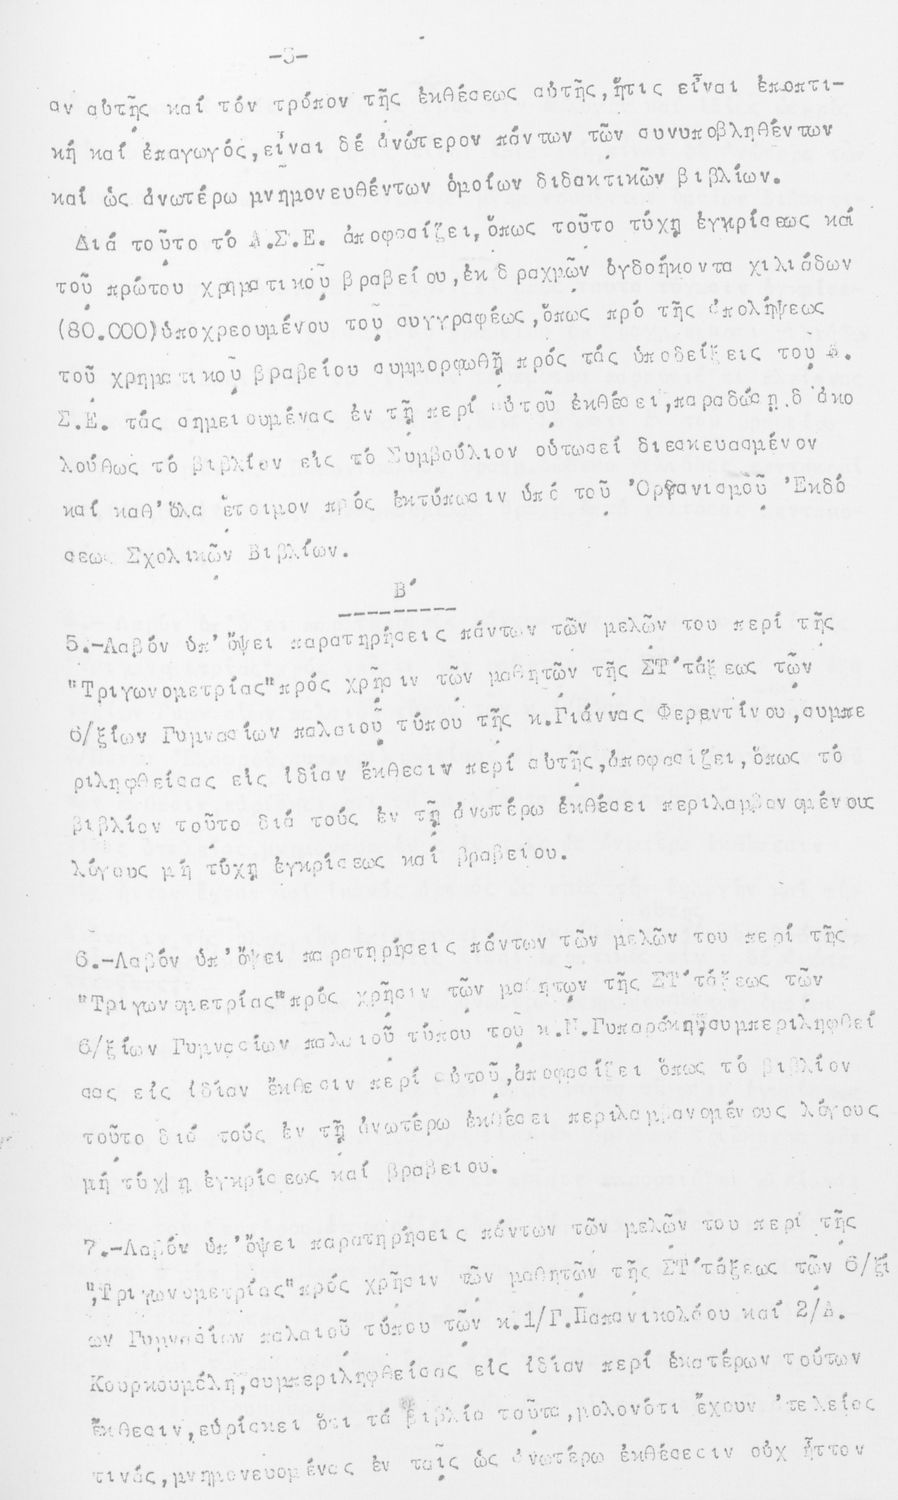 -8-
αν αὐτῆς καί τόν τρόπον τῆς ἐκθέσεως αὐτῆς, ἥτις εἶναι ἐποπτι-
κή καί ἐπαγωγός, εἶναι δέ ἀνώτερον πάντων τῶν συνυποβληθέντων
καί ὡς ἀνωτέρω μνημονευθέντων ὁμοίων διδακτικῶν βιβλίων.
Διά τοῦτο τό Α.Σ.Ε. ἀποφασίζει, ὅπως τοῦτο τύχῃ ἐγκρίσεως καί
τοῦ πρώτου χρηματικοῦ βραβείου, ἐκ δραχμῶν ὀγδοήκοντα χιλιάδων
(80.000) ὑποχρεουμένου τοῦ συγγραφέως, ὅπως πρό τῆς ἀπολήψεως
τοῦ χρηματικοῦ βραβείου συμμορφωθῇ πρός τάς ὑποδείξεις τοῦ Α.
Σ.Ε. τάς σημειουμένας ἐν τῇ περί αὐτοῦ ἐκθέσει, παραδώσῃ δ'ἀκο
λούθως τό βιβλίον εἰς τό Συμβούλιον οὑτωσεί διεσκευασμένον
καί καθ'ὅλα ἕτοιμον πρός ἐκτύπωσιν ὑπό τοῦ Ὀργανισμοῦ Ἐκδό
σεως Σχολικῶν Βιβλίων.
Β'
5.-Λαβόν ὑπ'ὄψει παρατηρήσεις πάντων τῶν μελῶν του περί τῆς
"Τριγωνομετρίας" πρός χρῆσιν τῶν μαθητῶν τῆς ΣΤ'τάξεως τῶν
6/ξίων Γυμνασίων παλαιοῦ τύπου τῆς κ.Γιάννας Φερεντίνου, συμπε
ριληφθείσας εἰς ἰδίαν ἔκθεσιν περί αὐτῆς, ἀποφασίζει, ὅπως τό
βιβλίον τοῦτο διά τούς ἐν τῇ ἀνωτέρω ἐκθέσει περιλαμβανομένους
λόγους μή τύχῃ ἐγκρίσεως καί βραβείου.
6.-Λαβόν ὑπ'ὄψει παρατηρήσεις πάντων τῶν μελῶν του περί τῆς
"Τριγωνομετρίας" πρός χρῆσιν τῶν μαθητῶν τῆς ΣΤ'τάξεως τῶν
6/ξίων Γυμνασίων παλαιοῦ τύπου τοῦ κ.Ν.Γυπαράκη, συμπεριληφθεί
σας εἰς ἰδίαν ἔκθεσιν περί αὐτοῦ, ἀποφασίζει ὅπως τό βιβλίον
τοῦτο διά τούς ἐν τῇ ἀνωτέρω ἐκθέσει περιλαμβανομένους λόγους
μή τύχῃ ἐγκρίσεως καί βραβειου.
7.-Λαβόν ὑπ'ὄψει παρατηρήσεις πάντων τῶν μελῶν του περί τῆς
"Τριγωνομετρίας" πρός χρῆσιν τῶν μαθητῶν τῆς ΣΤ'τάξεως τῶν 6/ξί
ων Γυμνασίων παλαιοῦ τύπου τῶν κ.1/Γ.Παπανικολάου καί 2/Α.
Κουρκουμέλη, συμπεριληφθείσας εἰς ἰδίαν περί ἑκατέρων τούτων
ἔκθεσιν, εὑρίσκει ὅτι τά βιβλία ταῦτα, μολονότι ἔχουν ἀτελείας
τινάς, μνημονευομένας ἐν ταῖς ὡς ἀνωτέρω ἐκθέσεσιν οὐχ ἧττον